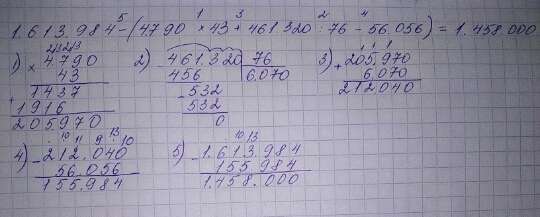 1.613.984 - (4790 × 43 + 461320 : 76 - 56.056) = 1.458.000
5 1 3 2 4
1) × 4790 43 1437 + 1916 205970
2) - 461.320 76 456 6,070 - 532 532 0
3) + 205,970 6.070 212040
4) - 212.040 56.056 155.984
5) - 1.613.984 155.984 1.458.000